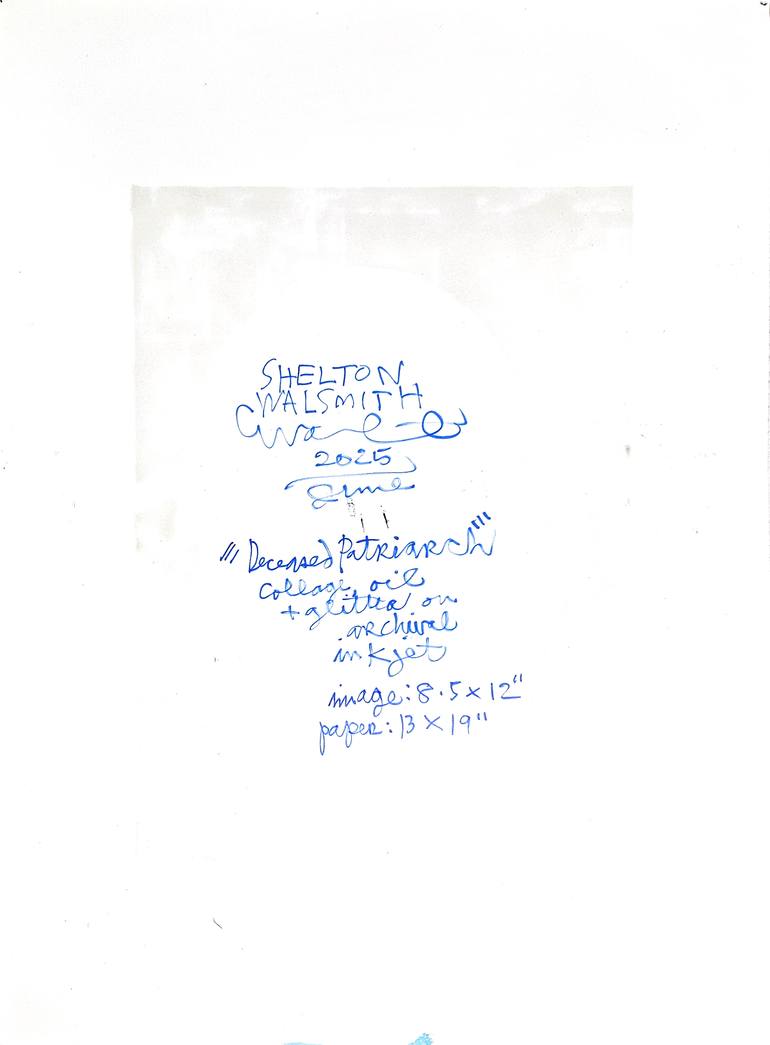 SHELTON
WALSMITH
2025
June
"Deceased Patriarch"
collage, oil
+ glitter on
archival
inkjet
image: 8.5 x 12"
paper: 13 x 19"